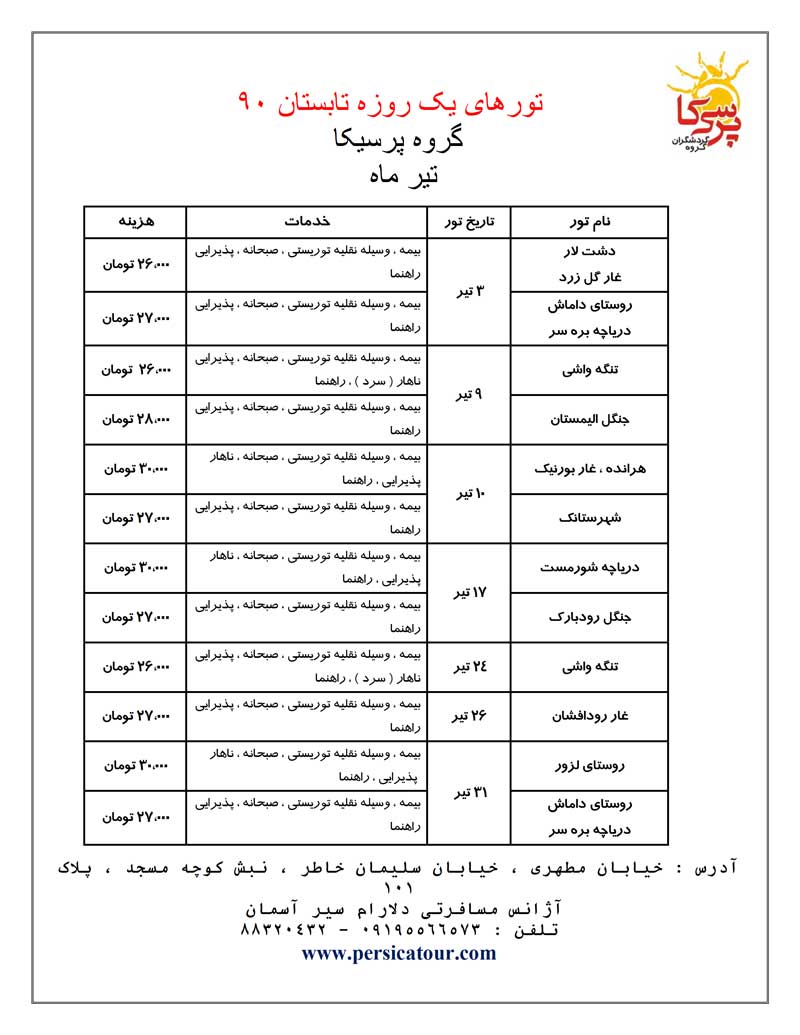 پرسیکا
گردشگران
گروه
تورهای یک روزه تابستان ۹۰
گروه پرسیکا
تیر ماه
نام تور تاریخ تور خدمات هزینه
دشت لار
غار گل زرد
۳ تیر
بیمه ، وسیله نقلیه توریستی ، صبحانه ، پذیرایی
راهنما
۲۶،۰۰۰ تومان
روستای داماش
دریاچه بره سر
بیمه ، وسیله نقلیه توریستی ، صبحانه ، پذیرایی
راهنما
۲۷،۰۰۰ تومان
تنگه واشی
۹ تیر
بیمه ، وسیله نقلیه توریستی ، صبحانه ، پذیرایی
ناهار ( سرد ) ، راهنما
۲۶،۰۰۰ تومان
جنگل الیمستان
بیمه ، وسیله نقلیه توریستی ، صبحانه ، پذیرایی
راهنما
۲۸،۰۰۰ تومان
هرانده ، غار بورنیک
۱۰ تیر
بیمه ، وسیله نقلیه توریستی ، صبحانه ، ناهار
پذیرایی ، راهنما
۳۰،۰۰۰ تومان
شهرستانک
بیمه ، وسیله نقلیه توریستی ، صبحانه ، پذیرایی
راهنما
۲۷،۰۰۰ تومان
دریاچه شورمست
۱۷ تیر
بیمه ، وسیله نقلیه توریستی ، صبحانه ، ناهار
پذیرایی ، راهنما
۳۰،۰۰۰ تومان
جنگل رودبارک
بیمه ، وسیله نقلیه توریستی ، صبحانه ، پذیرایی
راهنما
۲۷،۰۰۰ تومان
تنگه واشی
۲۴ تیر
بیمه ، وسیله نقلیه توریستی ، صبحانه ، پذیرایی
ناهار ( سرد ) ، راهنما
۲۶،۰۰۰ تومان
غار رودافشان
۲۶ تیر
بیمه ، وسیله نقلیه توریستی ، صبحانه ، پذیرایی
راهنما
۲۷،۰۰۰ تومان
روستای لزور
۳۱ تیر
بیمه ، وسیله نقلیه توریستی ، صبحانه ، ناهار
پذیرایی ، راهنما
۳۰،۰۰۰ تومان
روستای داماش
دریاچه بره سر
بیمه ، وسیله نقلیه توریستی ، صبحانه ، پذیرایی
راهنما
۲۷،۰۰۰ تومان
آدرس : خیابان مطهری ، خیابان سلیمان خاطر ، نبش کوچه مسجد ، پلاک
۱۰۱
آژانس مسافرتی دلارام سیر آسمان
تلفن : ۰۹۱۹۵۵۶۶۵۷۳ – ۸۸۳۲۰۴۳۲
www.persicatour.com